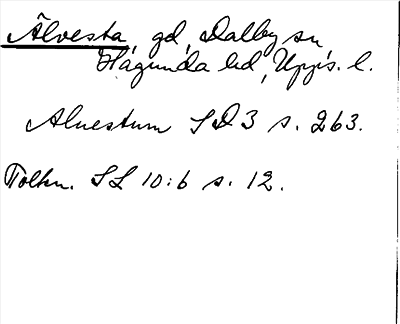 Älvesta, gd, Dalby sn
Hagunda hd, Upps. l.
Aluestum SD 3 s. 263.
Tolkn. SL 10:6 s. 12.